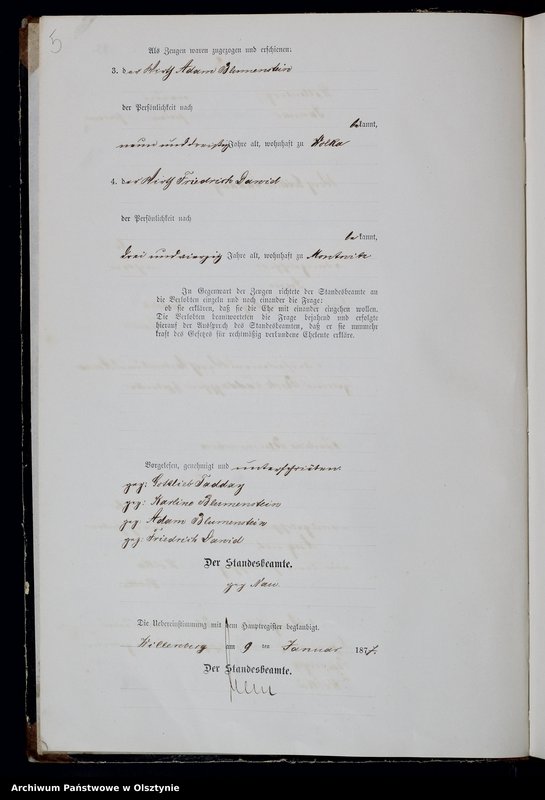 5
Als Zeugen waren zugezogen und erschienen:
3. der Wirth Adam Blumenstein
der Persönlichkeit nach
bekannt,
neun und dreißig Jahre alt, wohnhaft zu Wolka
4. der Wirth Friedrich Dawid
der Persönlichkeit nach
bekannt,
drei und vierzig Jahre alt, wohnhaft zu Montwitz
In Gegenwart der Zeugen richtete der Standesbeamte an
die Verlobten einzeln und nach einander die Frage:
ob sie erklären, daß sie die Ehe mit einander eingehen wollen.
Die Verlobten beantworteten die Frage bejahend und erfolgte
hierauf der Ausspruch des Standesbeamten, daß er sie nunmehr
kraft des Gesetzes für rechtmäßig verbundene Eheleute erkläre.
Vorgelesen, genehmigt und unterschrieben.
gez: Gottlieb Sadday
gez: Karline Blumenstein
gez: Adam Blumenstein
gez: Friedrich Dawid
Der Standesbeamte.
gez Nau
Die Uebereinstimmung mit dem Hauptregister beglaubigt.
Willenberg am 9 ten Januar 1877.
Der Standesbeamte.
Archiwum Państwowe w Olsztynie